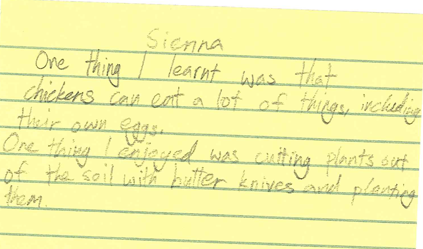 Sienna
One thing I learnt was that
chickens can eat a lot of things, including
their own eggs.
One thing I enjoyed was cutting plants out
of the soil with butter knives and planting
them.